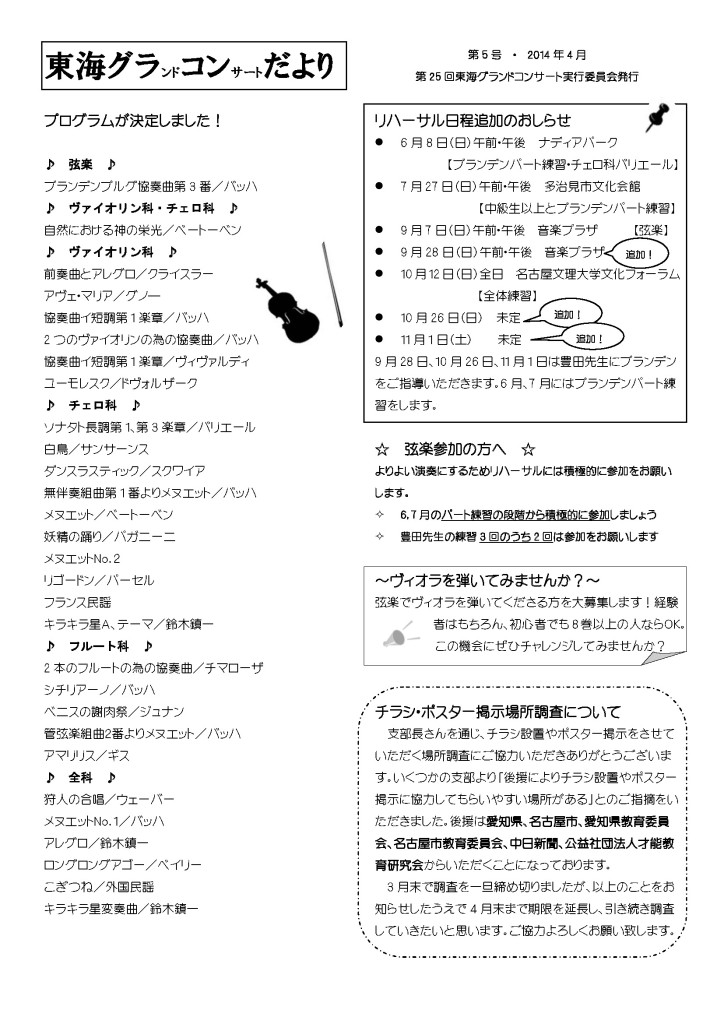 東海グランドコンサートだより
第5号 ・ 2014年4月
第25回東海グランドコンサート実行委員会発行
プログラムが決定しました！
♪ 弦楽 ♪
ブランデンブルグ協奏曲第3番／バッハ
♪ ヴァイオリン科・チェロ科 ♪
自然における神の栄光／ベートーベン
♪ ヴァイオリン科 ♪
前奏曲とアレグロ／クライスラー
アヴェ・マリア／グノー
協奏曲イ短調第1楽章／バッハ
2つのヴァイオリンの為の協奏曲／バッハ
協奏曲イ短調第1楽章／ヴィヴァルディ
ユーモレスク／ドヴォルザーク
♪ チェロ科 ♪
ソナタト長調第1、第3楽章／バリエール
白鳥／サンサーンス
ダンスラスティック／スクワイア
無伴奏組曲第1番よりメヌエット／バッハ
メヌエット／ベートーベン
妖精の踊り／パガニーニ
メヌエットNo.2
リゴードン／パーセル
フランス民謡
キラキラ星A、テーマ／鈴木鎮一
♪ フルート科 ♪
2本のフルートの為の協奏曲／チマローザ
シチリアーノ／バッハ
ベニスの謝肉祭／ジュナン
管弦楽組曲2番よりメヌエット／バッハ
アマリリス／ギス
♪ 全科 ♪
狩人の合唱／ウェーバー
メヌエットNo.1／バッハ
アレグロ／鈴木鎮一
ロングロングアゴー／ベイリー
こぎつね／外国民謡
キラキラ星変奏曲／鈴木鎮一
リハーサル日程追加のおしらせ
● 6月8日（日）午前・午後 ナディアパーク
【ブランデンパート練習・チェロ科バリエール】
● 7月27日（日）午前・午後 多治見市文化会館
【中級生以上とブランデンパート練習】
● 9月7日（日）午前・午後 音楽プラザ 【弦楽】
● 9月28日（日）午前・午後 音楽プラザ 追加！
● 10月12日（日）全日 名古屋文理大学文化フォーラム
【全体練習】
● 10月26日（日） 未定 追加！
● 11月1日（土） 未定 追加！
9月28日、10月26日、11月1日は豊田先生にブランデン
をご指導いただきます。6月、7月にはブランデンパート練
習をします。
☆ 弦楽参加の方へ ☆
よりよい演奏にするためリハーサルには積極的に参加をお願い
します。
✧ 6,7月のパート練習の段階から積極的に参加しましょう
✧ 豊田先生の練習3回のうち2回は参加をお願いします
～ヴィオラを弾いてみませんか？～
弦楽でヴィオラを弾いてくださる方を大募集します！経験
者はもちろん、初心者でも8巻以上の人ならOK。
この機会にぜひチャレンジしてみませんか？
チラシ・ポスター掲示場所調査について
支部長さんを通じ、チラシ設置やポスター掲示をさせて
いただく場所調査にご協力いただきありがとうございま
す。いくつかの支部より「後援によりチラシ設置やポスター
掲示に協力してもらいやすい場所がある」とのご指摘をい
ただきました。後援は愛知県、名古屋市、愛知県教育委員
会、名古屋市教育委員会、中日新聞、公益社団法人才能教
育研究会からいただくことになっております。
3月末で調査を一旦締め切りましたが、以上のことをお
知らせしたうえで4月末まで期限を延長し、引き続き調査
していきたいと思います。ご協力よろしくお願い致します。